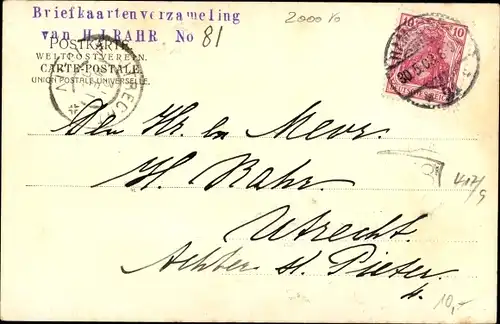 Briefkaartenverzameling
van H.J. BAHR No 81
2000 10
POSTKARTE.
WELTPOSTVEREIN.
CARTE-POSTALE
UNION POSTALE UNIVERSELLE.
UTRECHT
10 10
Den Hr. en Mevr.
H. Bahr.
Utrecht.
Achter St. Pieter.
10,-